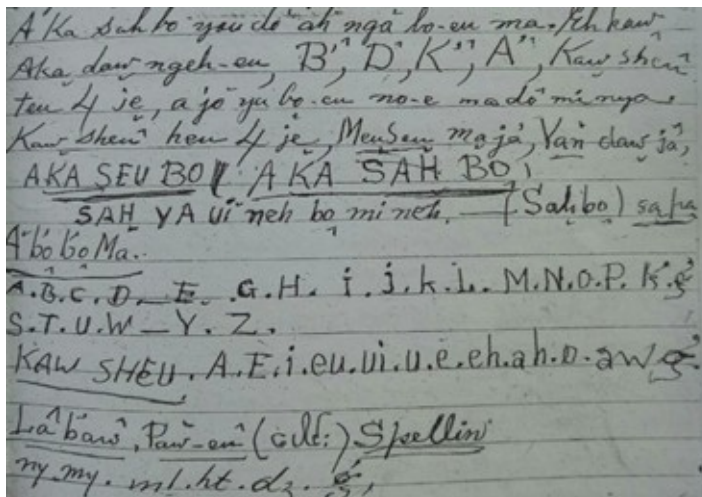 A'Ka Sah bo you dô ah ngâ bo-eu ma. Eh kaw
Aka daw ngeh-eu, B", D', K", A", Kaw sheu
teu 4 je, a jo ya bo-eu no-e ma dô mi nya.
Kaw sheu heu 4 je, Meuseu ma ja, Yan daw jâ,
AKA SEU BO / AKA SAH BO,
SAH YA ui neh bo mi neh. — (Sah bo) sa pa
A bo bo Ma.
A.B.C.D_E. .G.H. i.j.k.L. M.N.O.P. K.g
S.T.U.W_Y.Z.
KAW SHEU. A.E.i.eu.ui.u.e.eh.ah.o.aw.g
Lâ bawˆ, Paw-euˆ (old:) Spellin
ny.my. ml.ht.dz.g